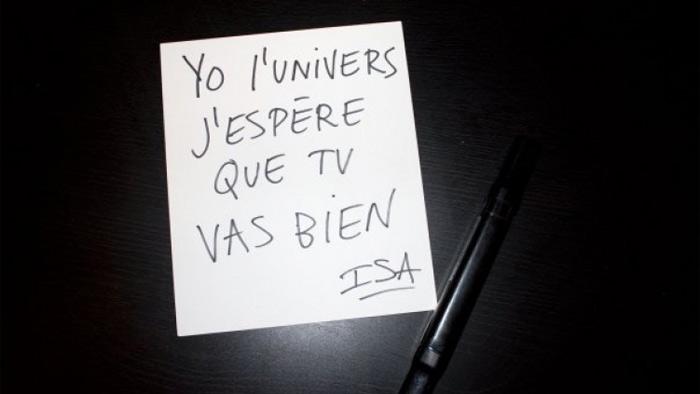 YO l'UNiVERS
J'ESPÈRE
QUE TU
VAS BiEN
ISA